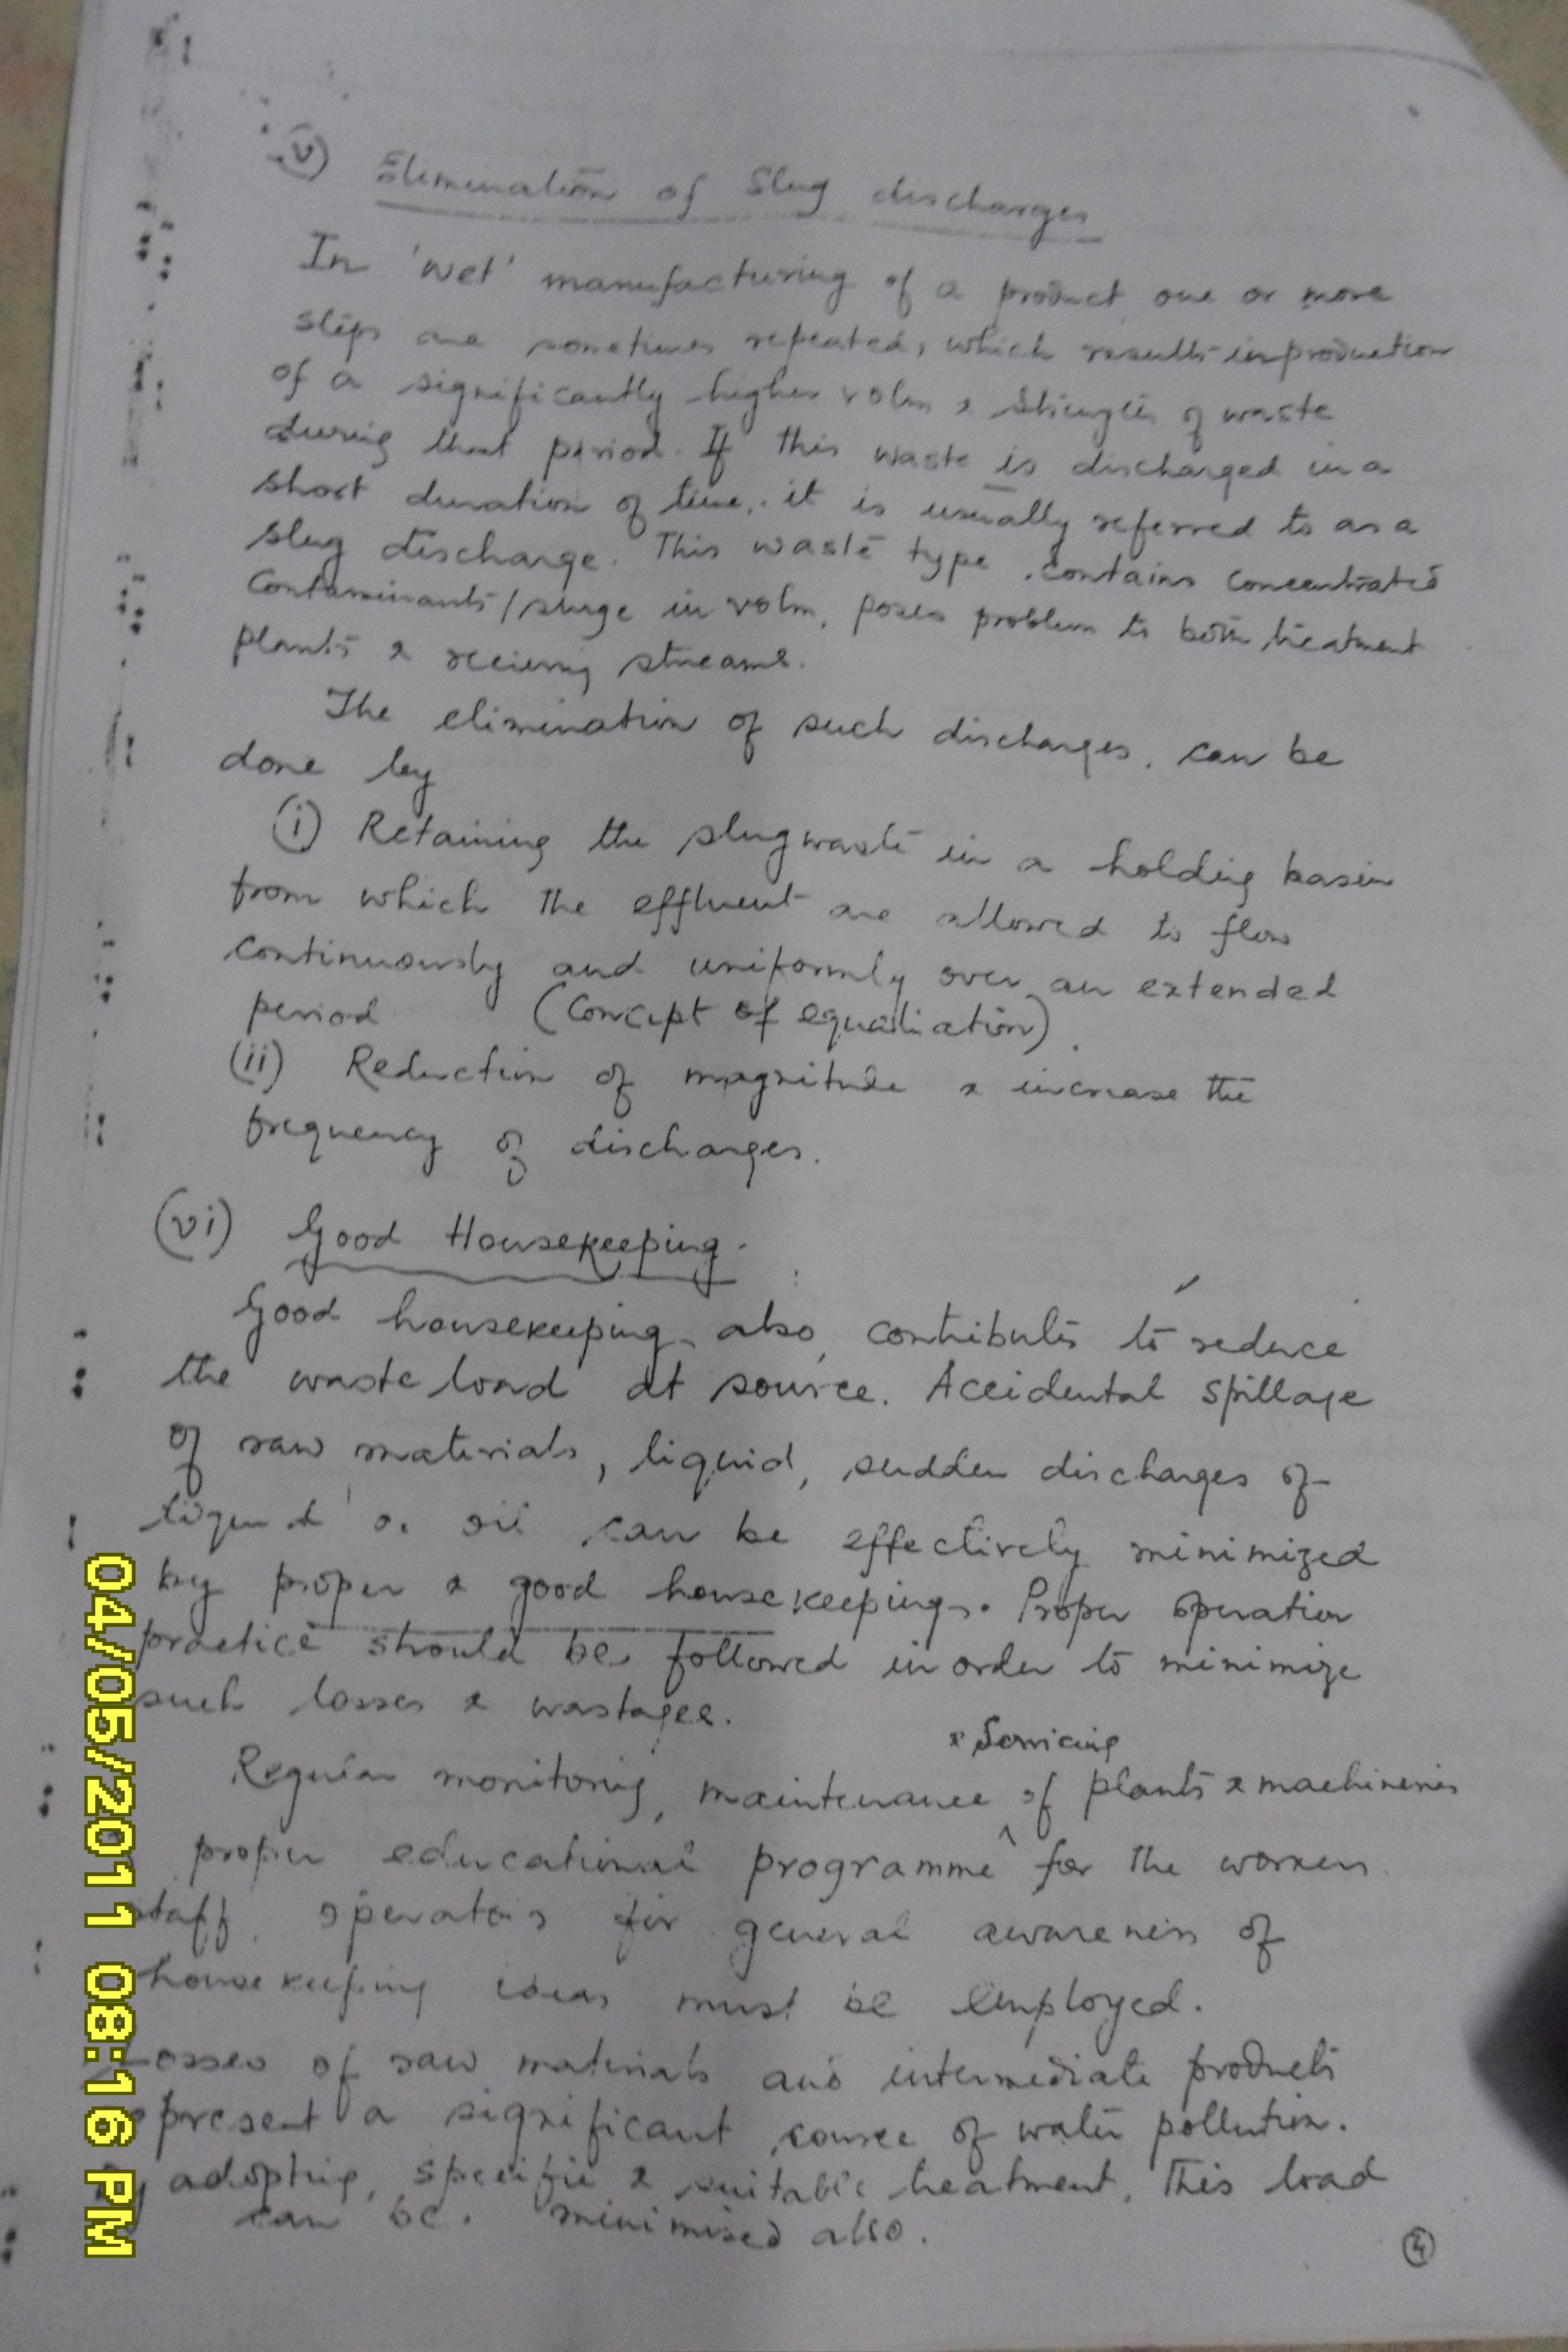 (v) Elimination of Slug discharges
In 'wet' manufacturing of a product one or more
steps are sometimes repeated, which results in production
of a significantly higher volm & strength of waste
during that period. If this waste is discharged in a
short duration of time, it is usually referred to as a
slug discharge. This waste type contains concentrated
Contaminants/ in volm, poses problem to both treatment
plants & streams.
The elimination of such discharges, can be
done by
(i) Retaining the slug waste in a holding basin
from which the effluent are allowed to flow
continuously and uniformly over an extended
period (Concept of equaliation).
(ii) Reduction of magnitude & increase the
frequency of discharges.
(vi) Good Housekeeping.
Good housekeeping also, contributes to reduce
the waste load at source. Accidental spillage
of raw materials, liquid, sudden discharges of
liquid or oil can be effectively minimized
by proper & good housekeeping. Proper operation
practice should be followed in order to minimize
such losses & wastages.
& Servicing
Regular monitoring, maintenance of plants & machineries
proper educational programme ^ for the workers
staff, operators for general awareness of
housekeeping ideas must be employed.
Losses of raw materials and intermediate products
present a significant source of water pollution.
adopting, specific & suitable treatment, this load
can be. minimised also.
4
04/05/2011 08:16 PM